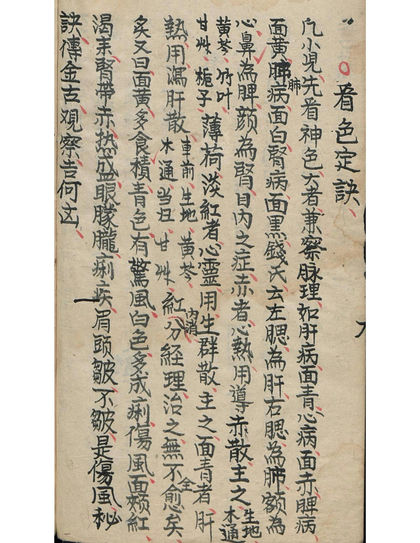 看色定訣
凢小児先看神色大者兼察脉理如肝病面青心病面赤脾病
面黄肺病面白腎病面黒錢氏云左腮為肝右腮為肺額為
肺
心鼻為脾頦為腎目内之症赤者心熱用導赤散主之生地木通
黄芩竹叶甘艸梔子薄荷淡紅者心靈用生群散主之面青者肝
熱用瀉肝散車前生地黄芩木通当归甘艸紅分経理治之無不愈矣
内消
全
矣又曰面黄多食積青色有驚風白色多成痢傷風面頰紅
渇来腎帯赤熱盛眼朦朧痢疾眉頭皺不皺是傷風秘
訣傳金古観察吉何凶